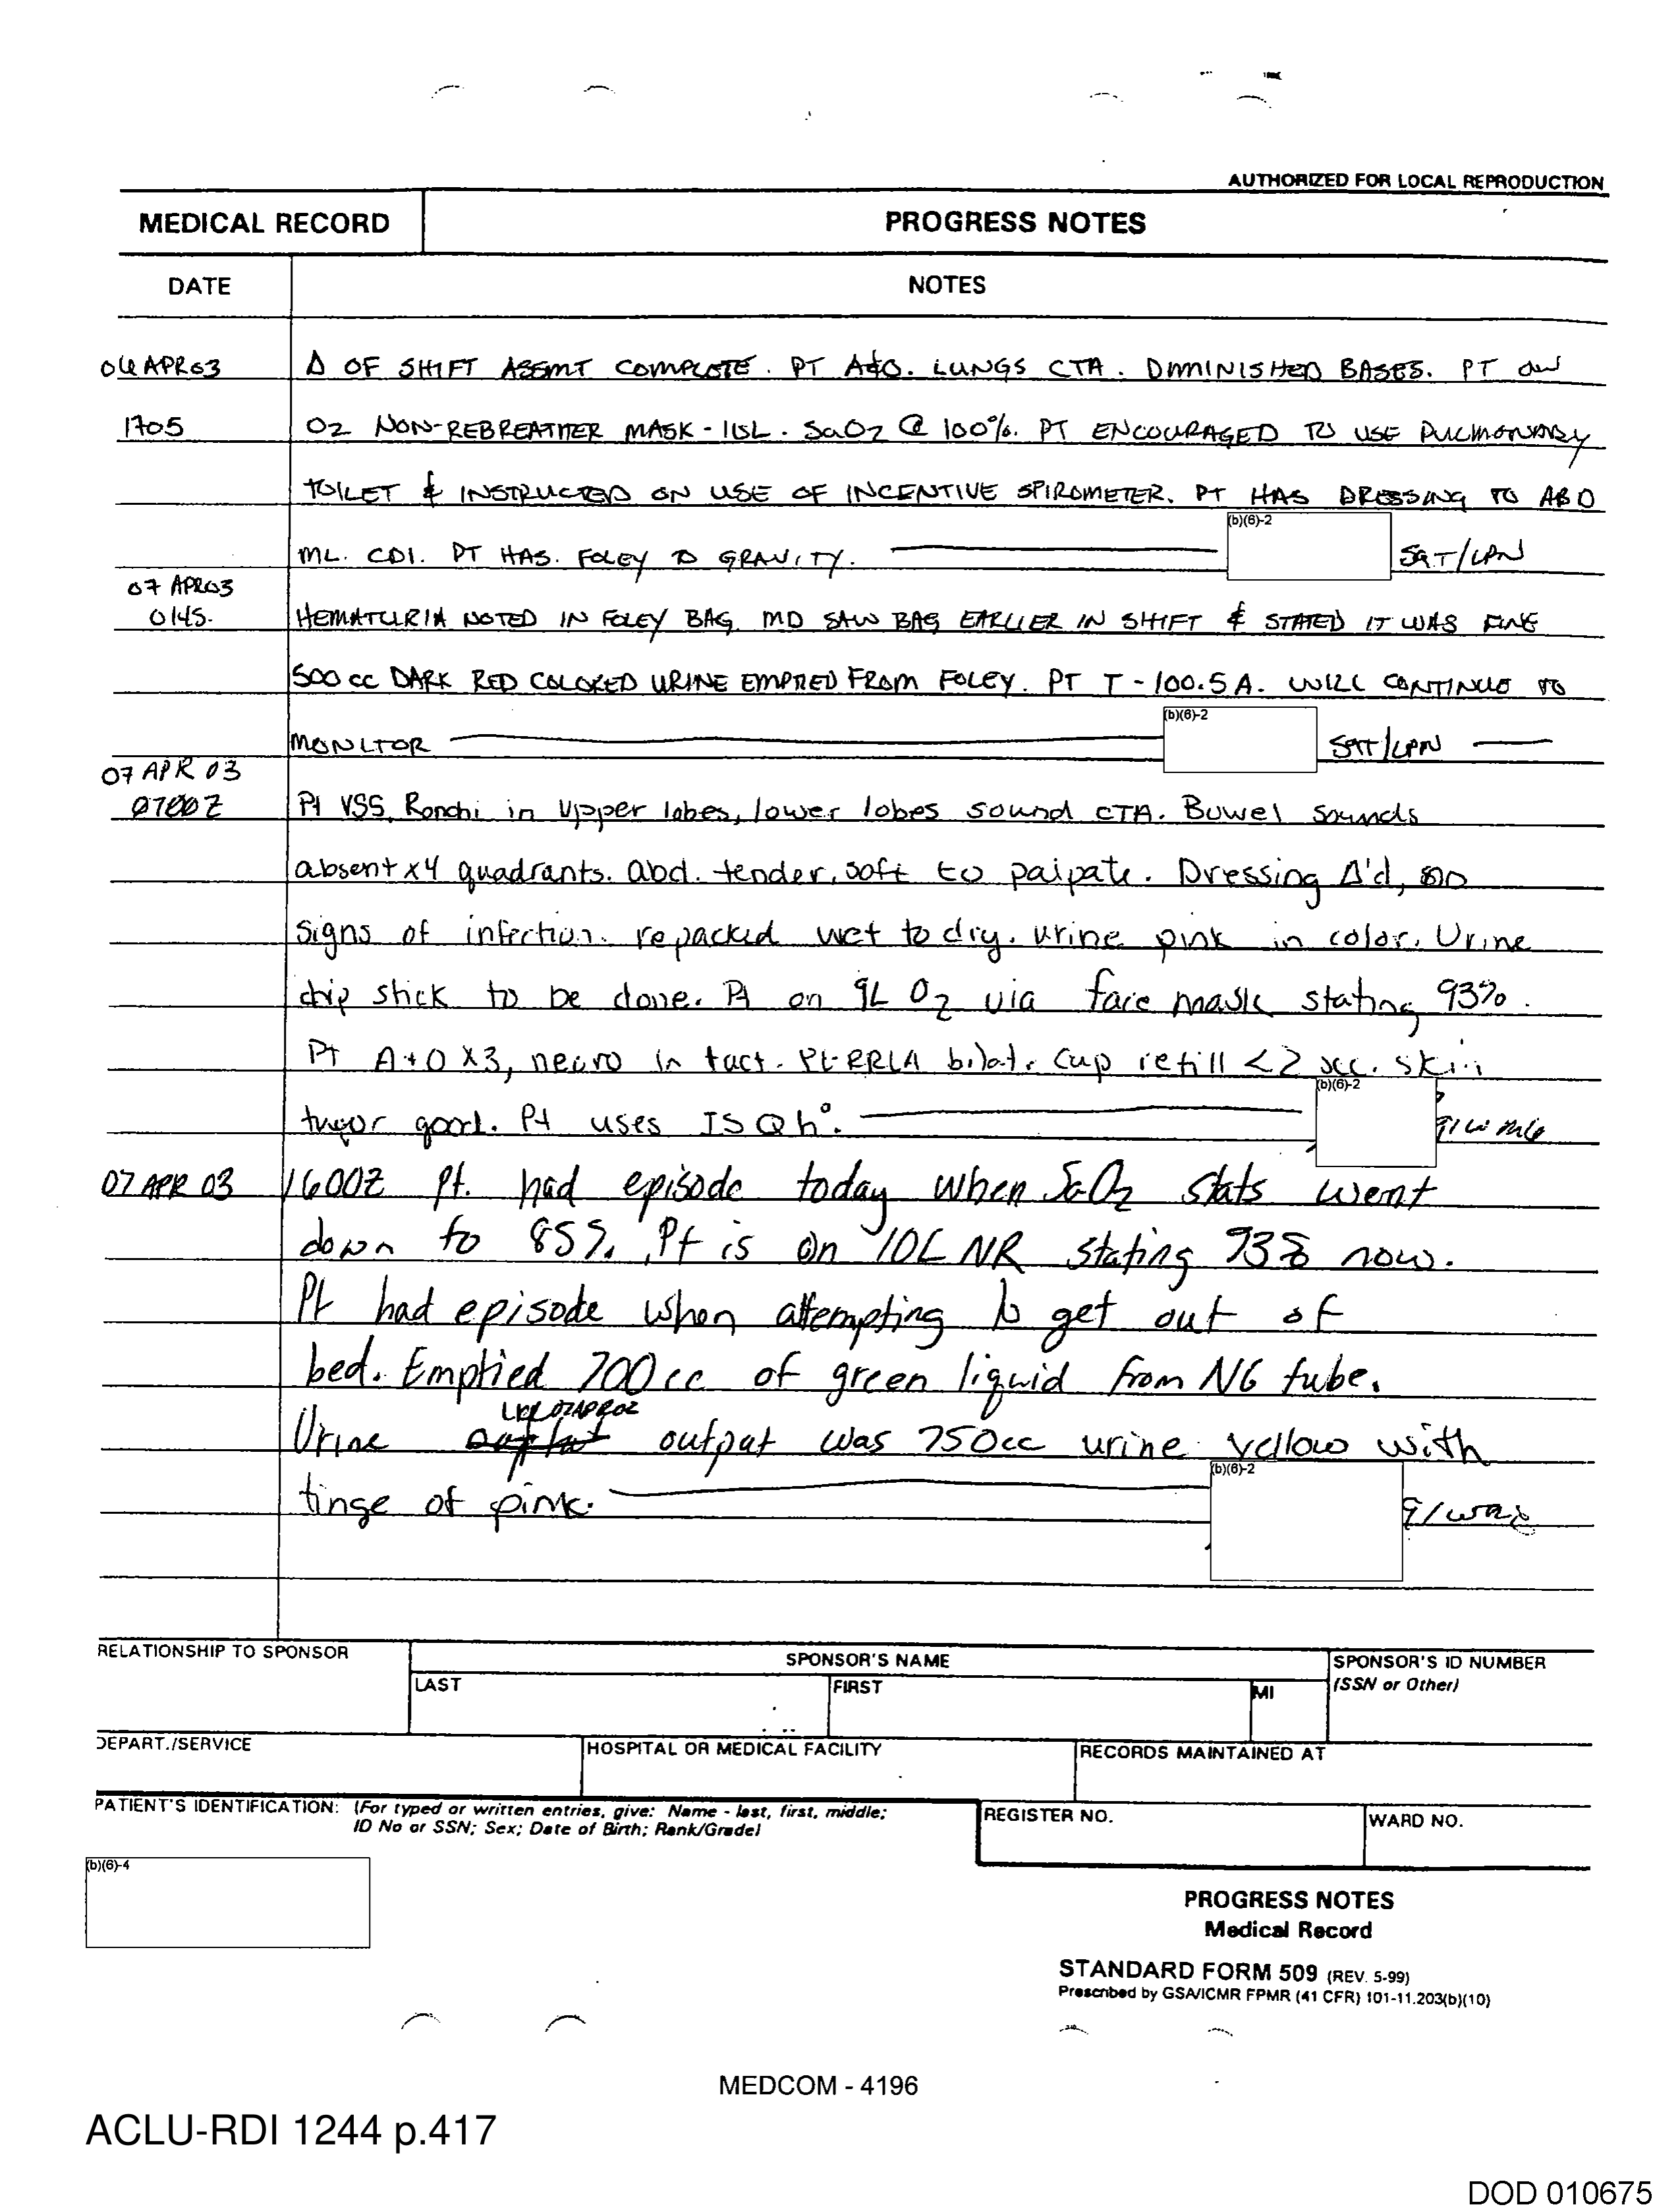 AUTHORIZED FOR LOCAL REPRODUCTION
MEDICAL RECORD
PROGRESS NOTES
DATE
NOTES
06 APR 03 Δ OF SHIFT ASSMT COMPLETE. PT A&O. LUNGS CTA. DIMINISHED BASES. PT ON
1705 O2 NON-REBREATHER MASK - 15L. SaO2 @ 100%. PT ENCOURAGED TO USE PULMONARY
TOILET & INSTRUCTED ON USE OF INCENTIVE SPIROMETER. PT HAS DRESSING TO ABD
(b)(6)-2
ML. CDI. PT HAS FOLEY TO GRAVITY. SGT/LPN
07 APR 03
0145. HEMATURIA NOTED IN FOLEY BAG. MD SAW BAG EARLIER IN SHIFT & STATED IT WAS FINE
500 cc DARK RED COLORED URINE EMPTIED FROM FOLEY. PT T - 100.5 A. WILL CONTINUE TO
(b)(6)-2
MONITOR SGT/LPN
07 APR 03
0700Z Pt VSS. Ronchi in upper lobes, lower lobes sound CTA. Bowel sounds
absent x4 quadrants. Abd. tender, soft to palpate. Dressing Δ'd, no
signs of infection. repacked wet to dry. urine pink in color. Urine
dip stick to be done. Pt on 9L O2 via face mask stating 93%.
Pt A+O x3, neuro in tact. PERRLA bilat. cap refill <2 sec. skin
(b)(6)-2
turgor good. Pt uses IS Qh°. 91W M6
07 APR 03 1600Z Pt. had episode today when SaO2 stats went
down to 85%. Pt is on 10L NR stating 93% now.
Pt had episode when attempting to get out of
bed. Emptied 700cc of green liquid from NG tube.
07APR02
Urine output was 750cc urine yellow with
(b)(6)-2
tinge of pink. 91W
RELATIONSHIP TO SPONSOR
SPONSOR'S NAME
SPONSOR'S ID NUMBER
(SSN or Other)
LAST
FIRST
MI
DEPART./SERVICE
HOSPITAL OR MEDICAL FACILITY
RECORDS MAINTAINED AT
PATIENT'S IDENTIFICATION: (For typed or written entries, give: Name - last, first, middle;
ID No or SSN; Sex; Date of Birth; Rank/Grade)
REGISTER NO.
WARD NO.
(b)(6)-4
PROGRESS NOTES
Medical Record
STANDARD FORM 509 (REV. 5-99)
Prescribed by GSA/ICMR FPMR (41 CFR) 101-11.203(b)(10)
MEDCOM - 4196
ACLU-RDI 1244 p.417
DOD 010675